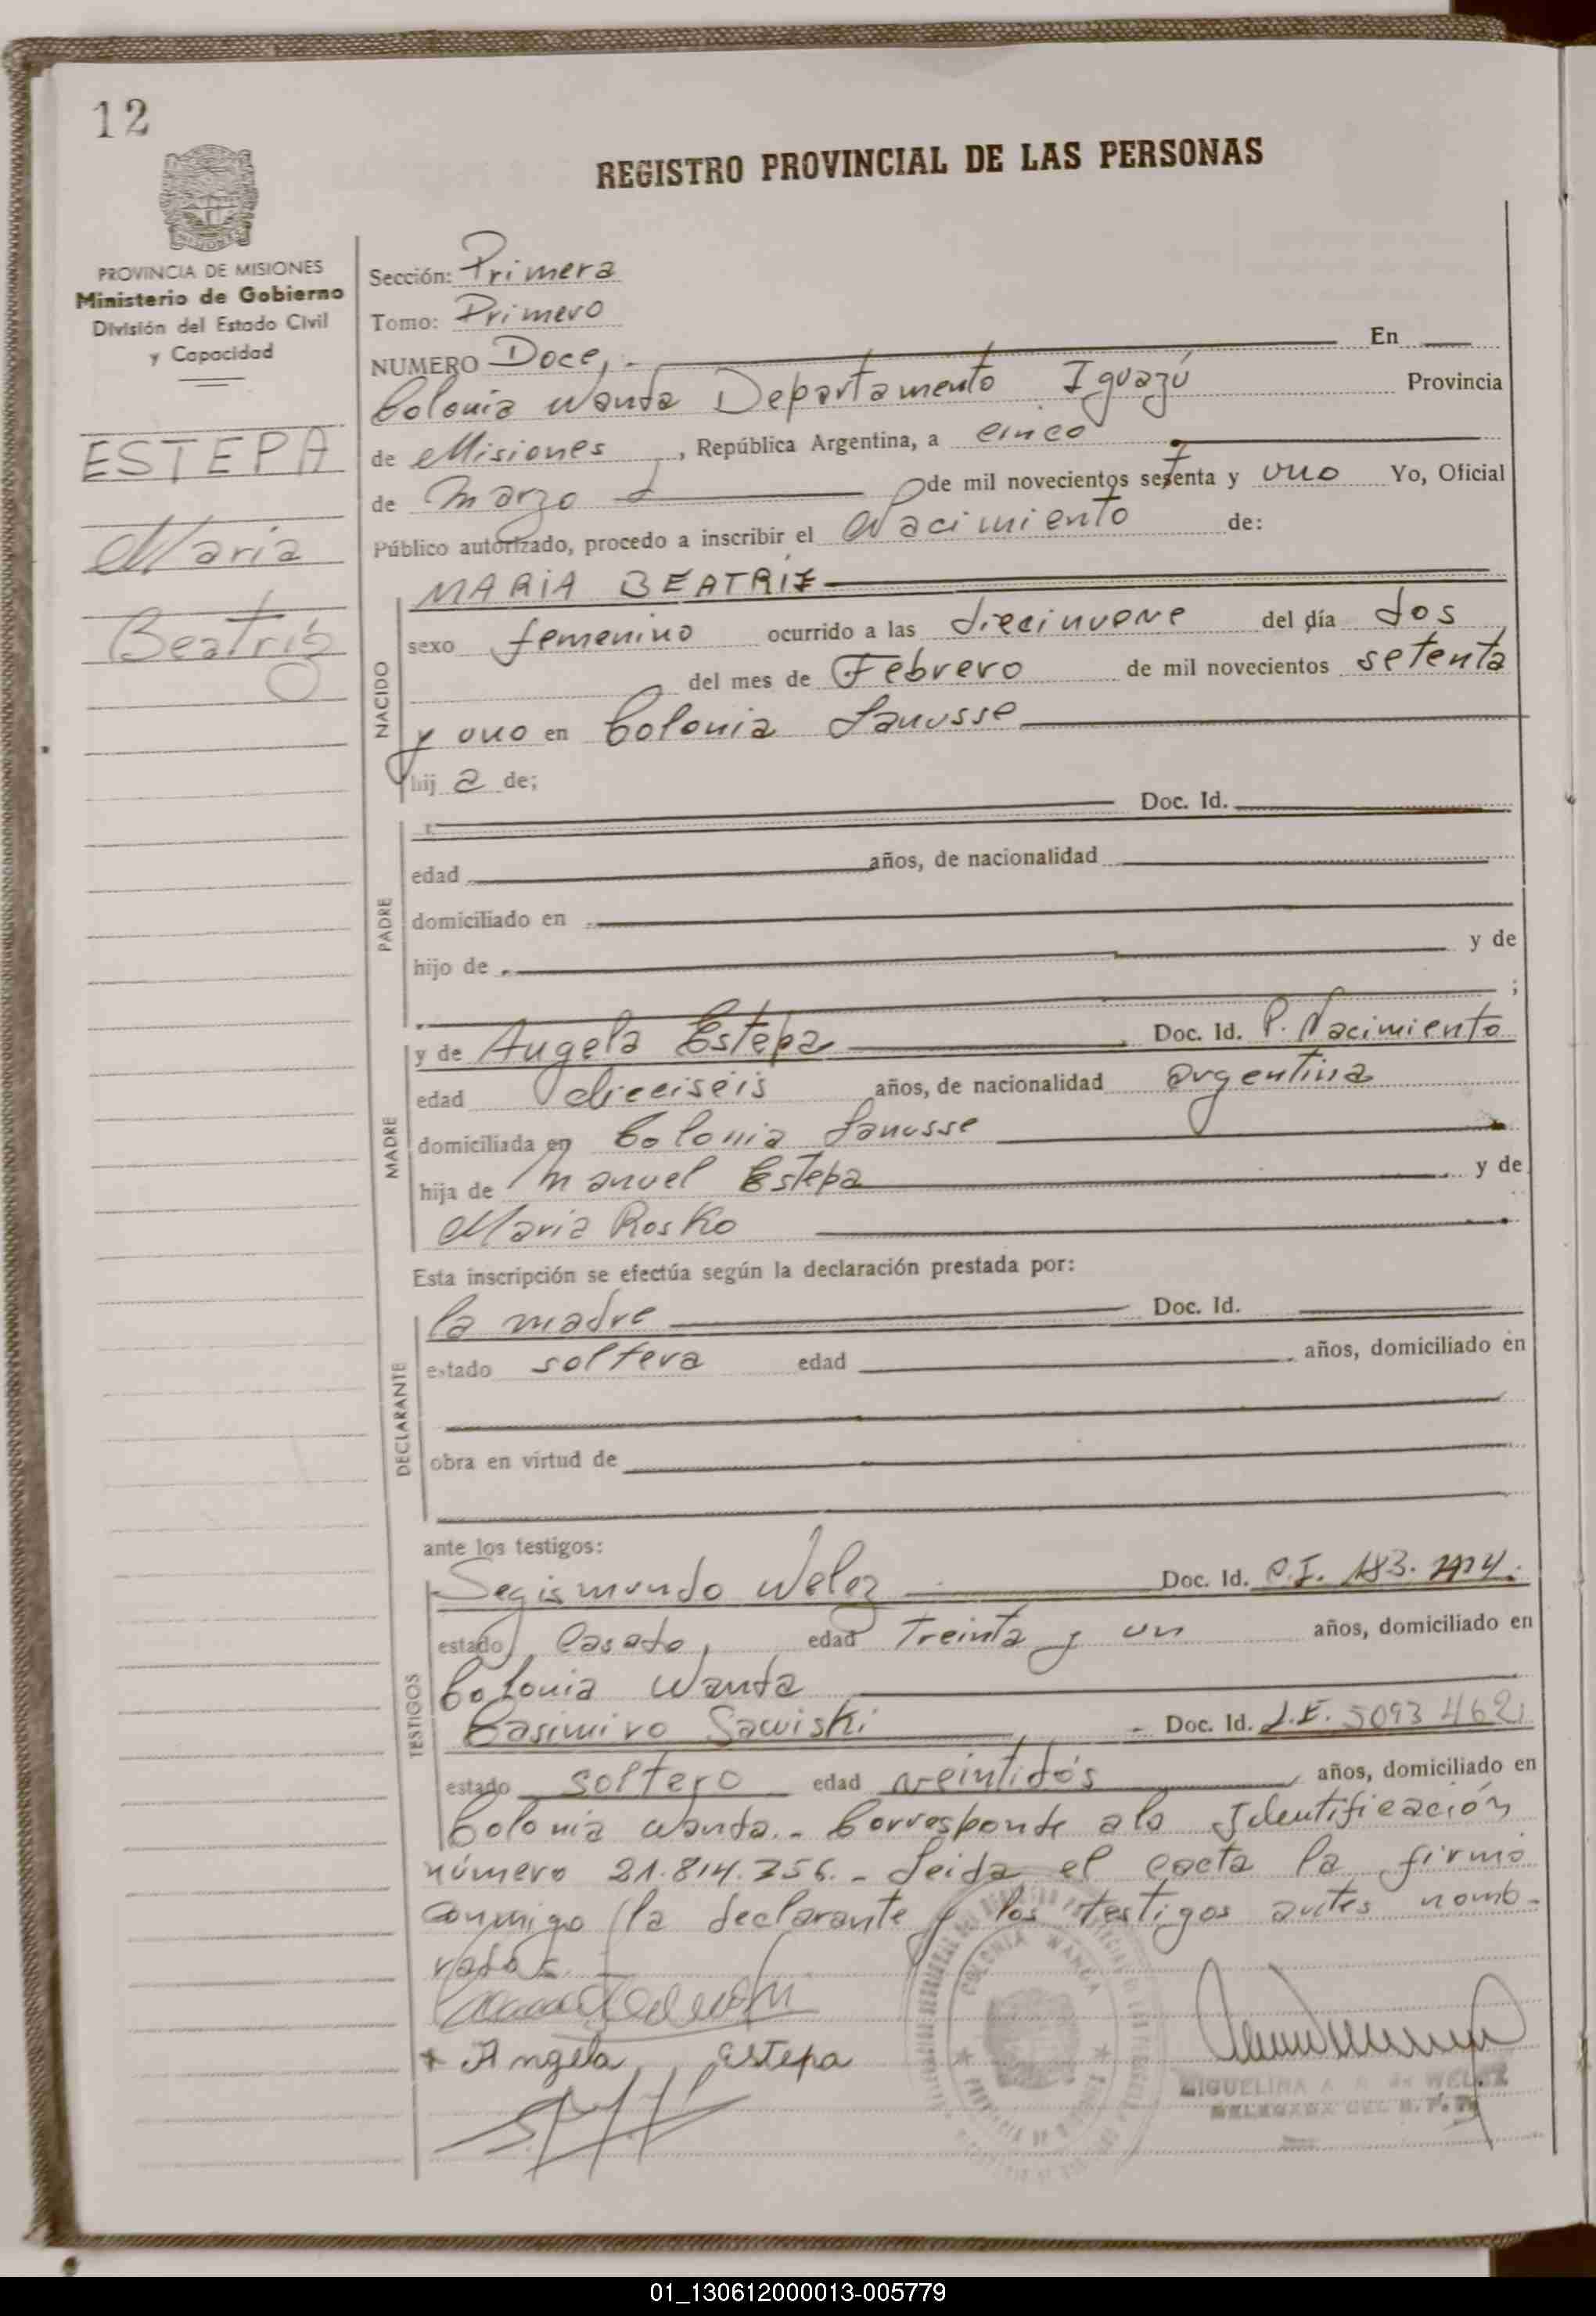 12
REGISTRO PROVINCIAL DE LAS PERSONAS
MISIONES
PROVINCIA DE MISIONES
Ministerio de Gobierno
División del Estado Civil
y Capacidad
ESTEPA
Maria
Beatriz
Sección: Primera
Tomo: Primero
NUMERO Doce, En
Colonia Wanda Departamento Iguazú Provincia
de Misiones, República Argentina, a cinco
de Marzo de mil novecientos setenta y uno Yo, Oficial
Público autorizado, procedo a inscribir el Nacimiento de:
NACIDO
MARIA BEATRIZ
sexo femenino ocurrido a las diecinueve del día dos
del mes de Febrero de mil novecientos setenta
y uno en Colonia Lanusse
hij a de;
PADRE
Doc. Id.
edad años, de nacionalidad
domiciliado en
hijo de y de
;
MADRE
y de Angela Estepa Doc. Id. P. Nacimiento
edad dieciséis años, de nacionalidad argentina
domiciliada en Colonia Lanusse
hija de Manuel Estepa y de
Maria Rosko
Esta inscripción se efectúa según la declaración prestada por:
DECLARANTE
la madre Doc. Id.
estado soltera edad años, domiciliado en
obra en virtud de
ante los testigos:
TESTIGOS
Segismundo Weloz Doc. Id. C.I. 183.
estado Casado, edad Treinta y un años, domiciliado en
Colonia Wanda
Casimiro Sawiski Doc. Id. L.E. 5093462
estado soltero edad veintidós años, domiciliado en
Colonia Wanda.- Corresponde a la Identificación
número 21.814.356.- Leida el eacta la firma
conmigo la declarante y los testigos antes nomb-
rados.
+ Angela Estepa
COLONIA WANDA
MIGUELINA A. de WELTZ
DELEGADA DEL R. P. P.
01_130612000013-005779